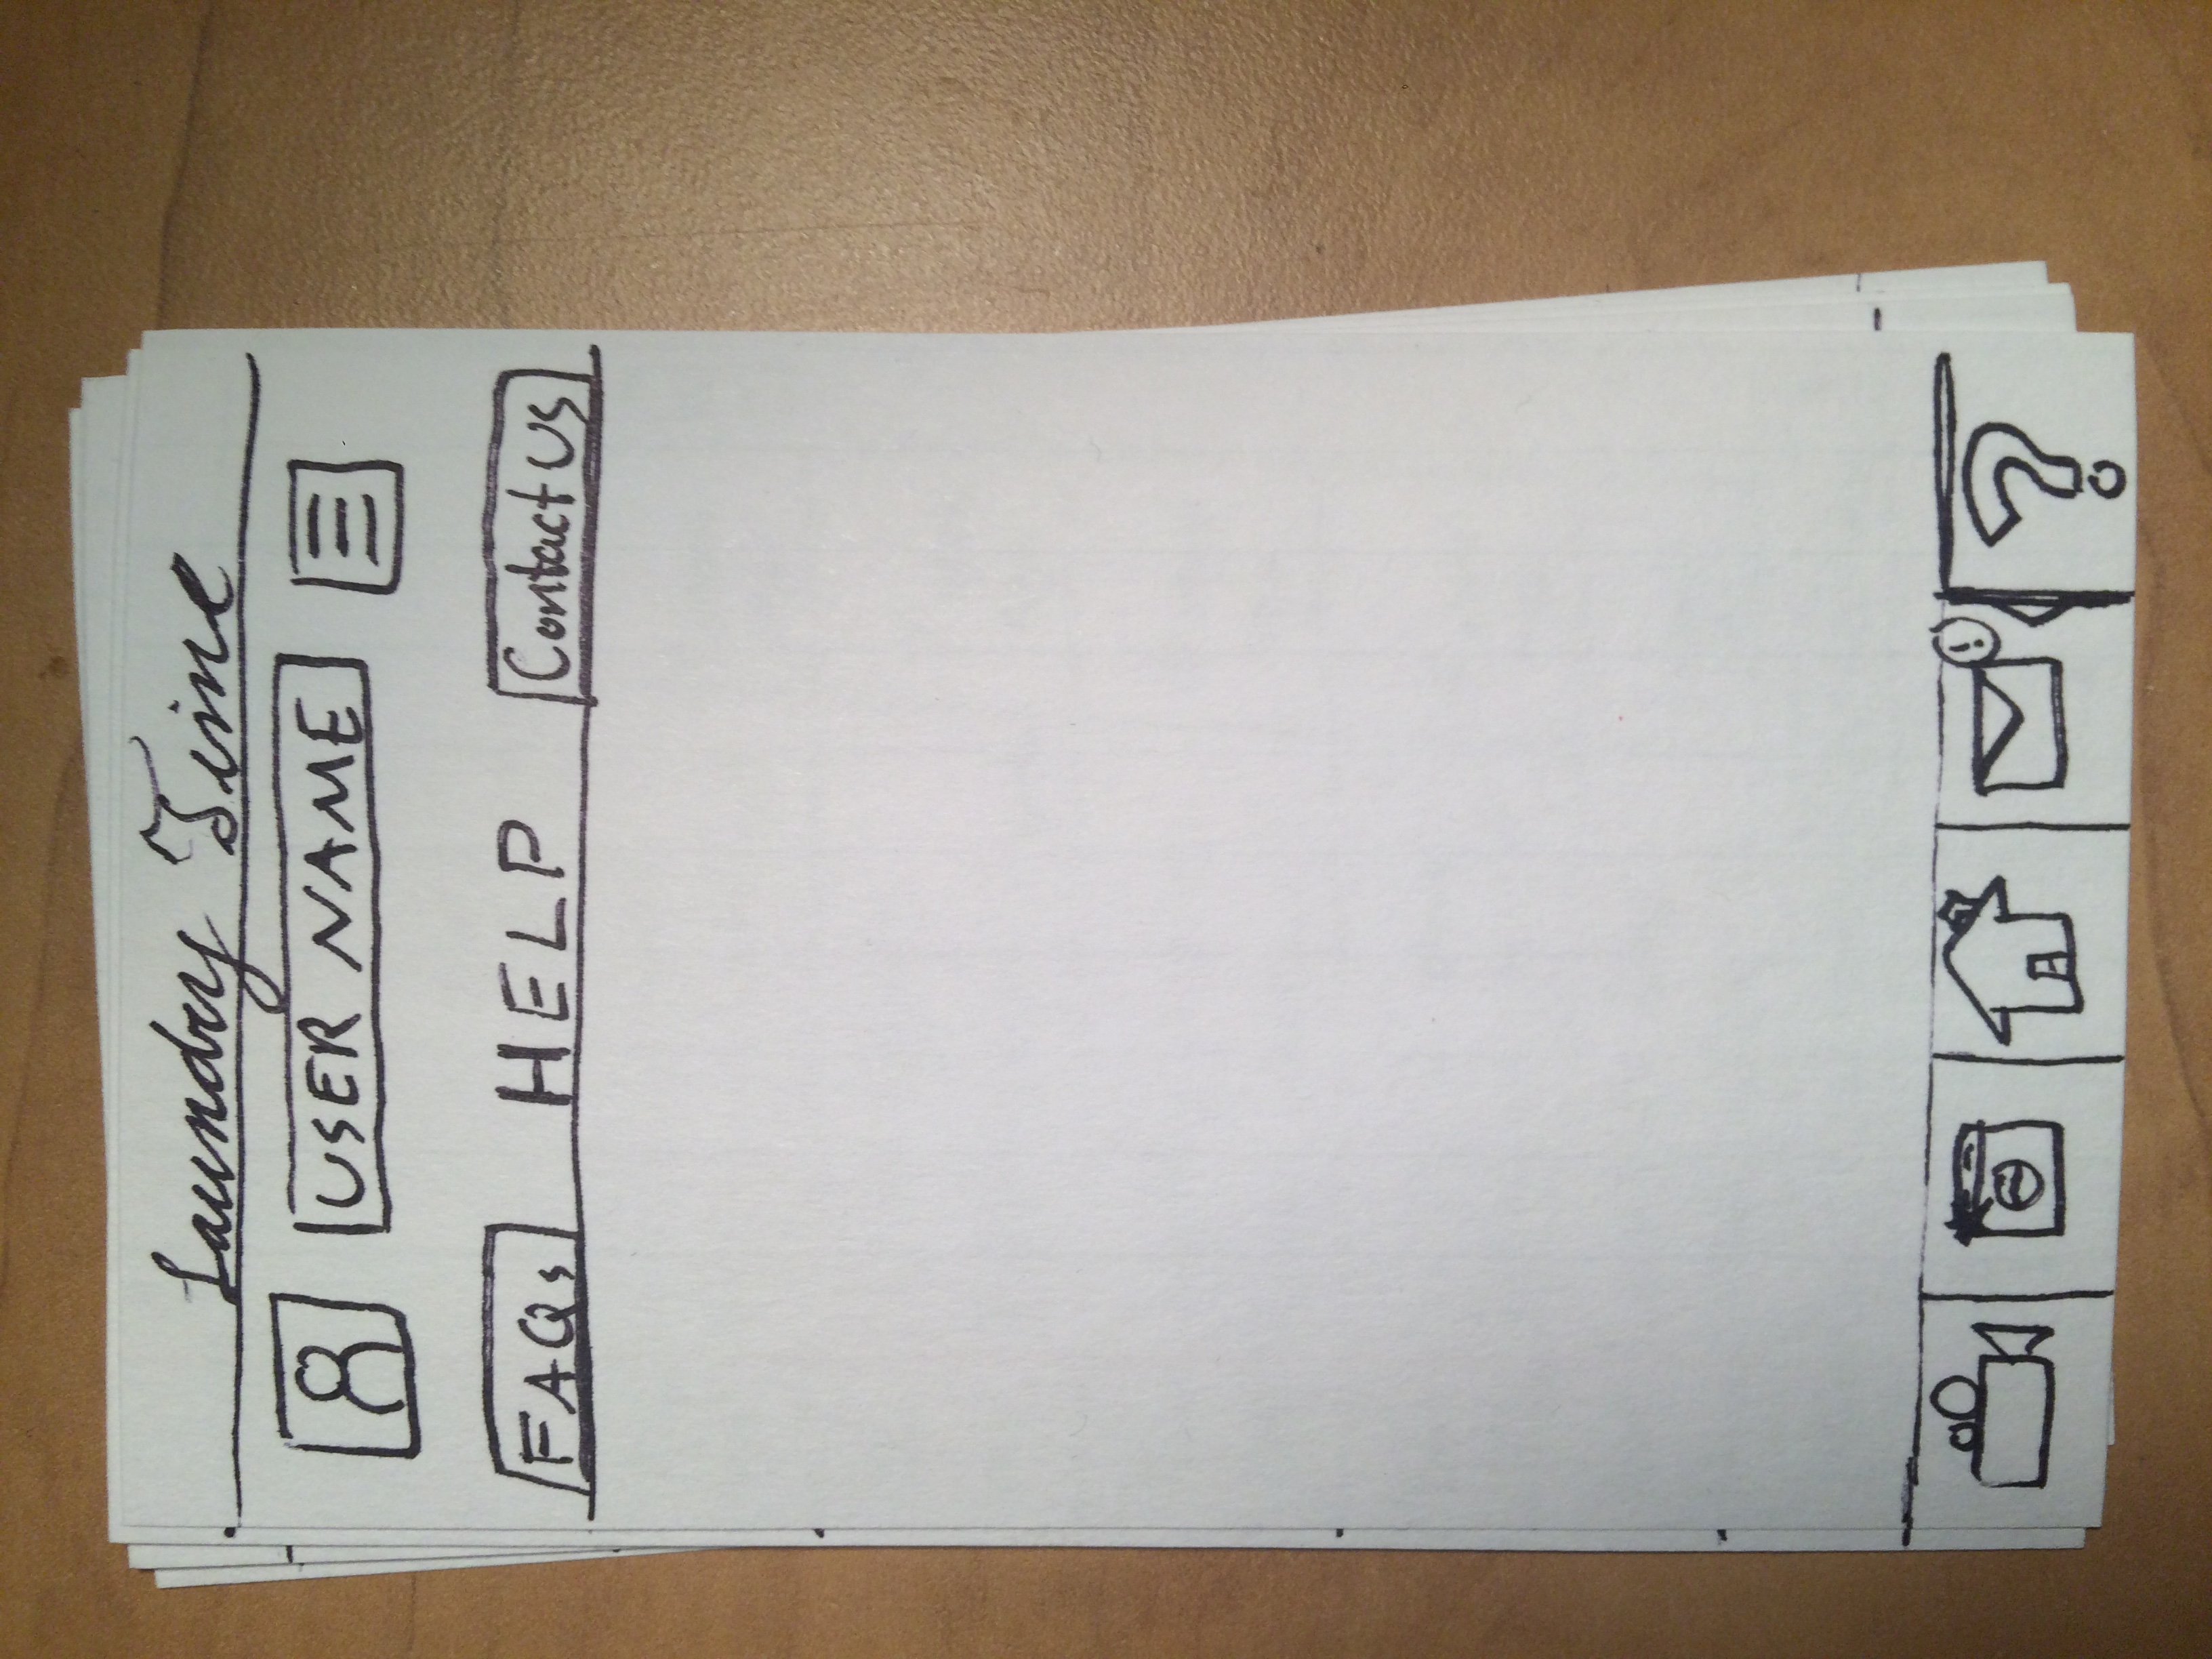 Laundry Time
USER NAME
FAQs HELP Contact Us
!
?